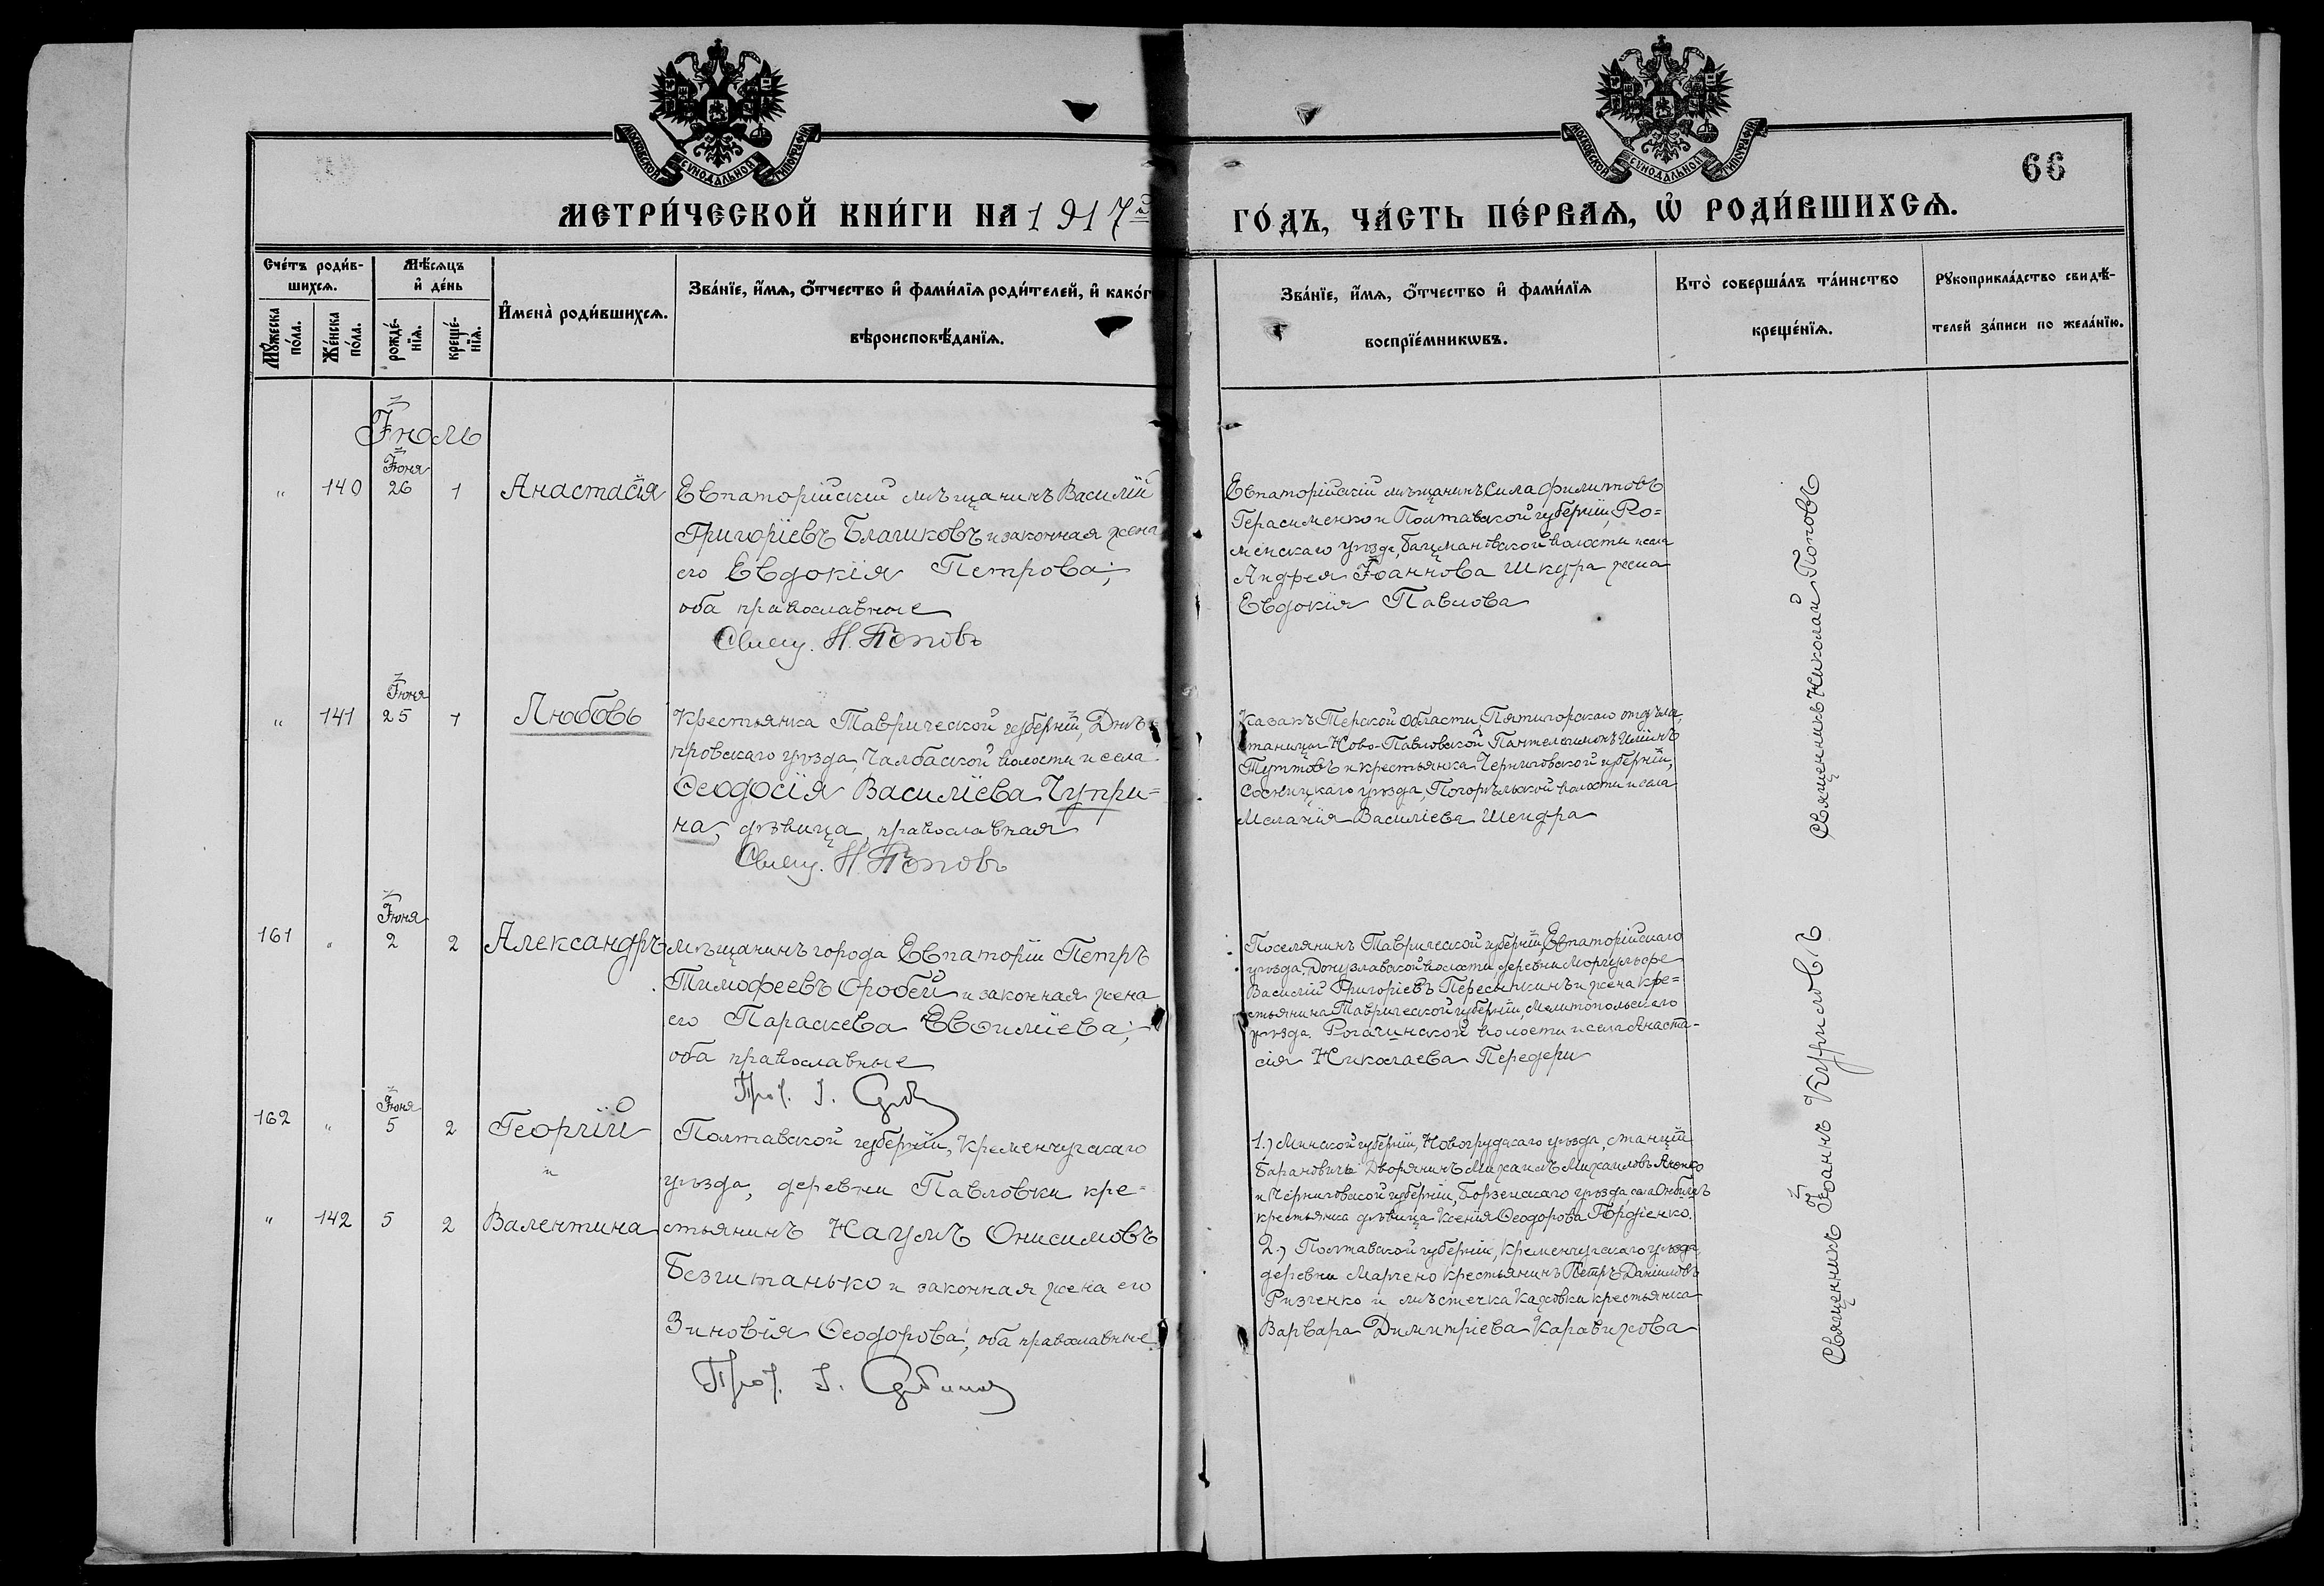 МОСКОВСКОЙ СѴНОДАЛЬНОЙ ТИПОГРАФІИ
МОСКОВСКОЙ СѴНОДАЛЬНОЙ ТИПОГРАФІИ
66
МЕТРИ́ЧЕСКОЙ КНИ́ГИ НА 1917й
ГО́ДЪ, ЧА́СТЬ ПЕ́РВАѦ, Ѡ҆ РОДИ́ВШИХСѦ.
Сче́тъ роди́в-
шихсѧ.
Мѣ́сѧцъ
и҆ де́нь
Мꙋ́жеска по́ла.
Же́нска по́ла.
рожде́-нїѧ.
креще́-нїѧ.
И҆мена̀ роди́вшихсѧ.
Зва́нїе, и҆́мѧ, ѻ҆́тчество и҆ фами́лїѧ роди́телей, и҆ како́г
вѣроисповѣ́данїѧ.
Зва́нїе, и҆́мѧ, ѻ҆́тчество и҆ фами́лїѧ
воспрїе́мникѡвъ.
Кто̀ соверша́лъ та́инство
креще́нїѧ.
Рꙋкоприкла́дство свидѣ́-
телей за́писи по жела́нїю.
Іюль
Іюня
„ 140 26 1 Анастасія
Евпаторійскій мѣщанинъ Василій
Григоріевъ Блашковъ и законная жена
его Евдокія Петрова;
оба православные
Свящ. Н. Поповъ
Евпаторійскій мѣщанинъ Сила Филиповъ
Герасименко и Полтавской губерніи, Ро=
менскаго уѣзда, волости и села
Андрея Іоаннова Шкура жена
Евдокія Павлова
Священникъ Николай Поповъ
Іюня
„ 141 25 1 Любовь
Крестьянка Таврической губерніи, Днѣ-
провскаго уѣзда, Чалбаской волости и села
Ѳеодосія Василіева Чупри=
на, дѣвица, православная
Свящ. Н. Поповъ
Казакъ Терской области, Пятигорскаго отдѣла,
станицы Ново-Павловской Пантелеимонъ
и крестьянка Черниговской губерніи,
Сосницкаго уѣзда, Погорѣльской волости и села
Меланія Василіева Шендра
Іюня
161 „ 2 2 Александръ
Мѣщанинъ города Евпаторіи Петръ
Тимофеевъ Оробей и законная жена
его Параскева Евѳиміева;
оба православные
Прот. І.
Поселянинъ Таврической губерніи, Евпаторійскаго
уѣзда, Донузлавской волости, деревни
Василій Григоріевъ и жена кре=
стьянина Таврической губерніи, Мелитопольскаго
уѣзда, Рогачинской волости и села Анаста-
сія Николаева Передери
Іюня
162 „ 5 2 Георгій
и
„ 142 5 2 Валентина
Полтавской губерніи, Кременчугскаго
уѣзда, деревни Павловки кре=
стьянинъ Наумъ Онисимовъ
Безштанько и законная жена его
Зиновія Ѳеодорова; оба православные
Прот. І.
1.) Минской губерніи, Новогрудскаго уѣзда, станціи
Барановичи Дворянинъ Михаилъ Михаиловъ
и Черниговской губерніи, Борзенскаго уѣзда, села
крестьянка дѣвица Ксенія Ѳеодорова Гордіенко.
2.) Полтавской губерніи, Кременчугскаго уѣзда,
деревни крестьянинъ Петръ Даніиловъ
Ризченко и мѣстечка Каховки крестьянка
Варвара Димитріева
Священникъ Іоаннъ Курисловъ